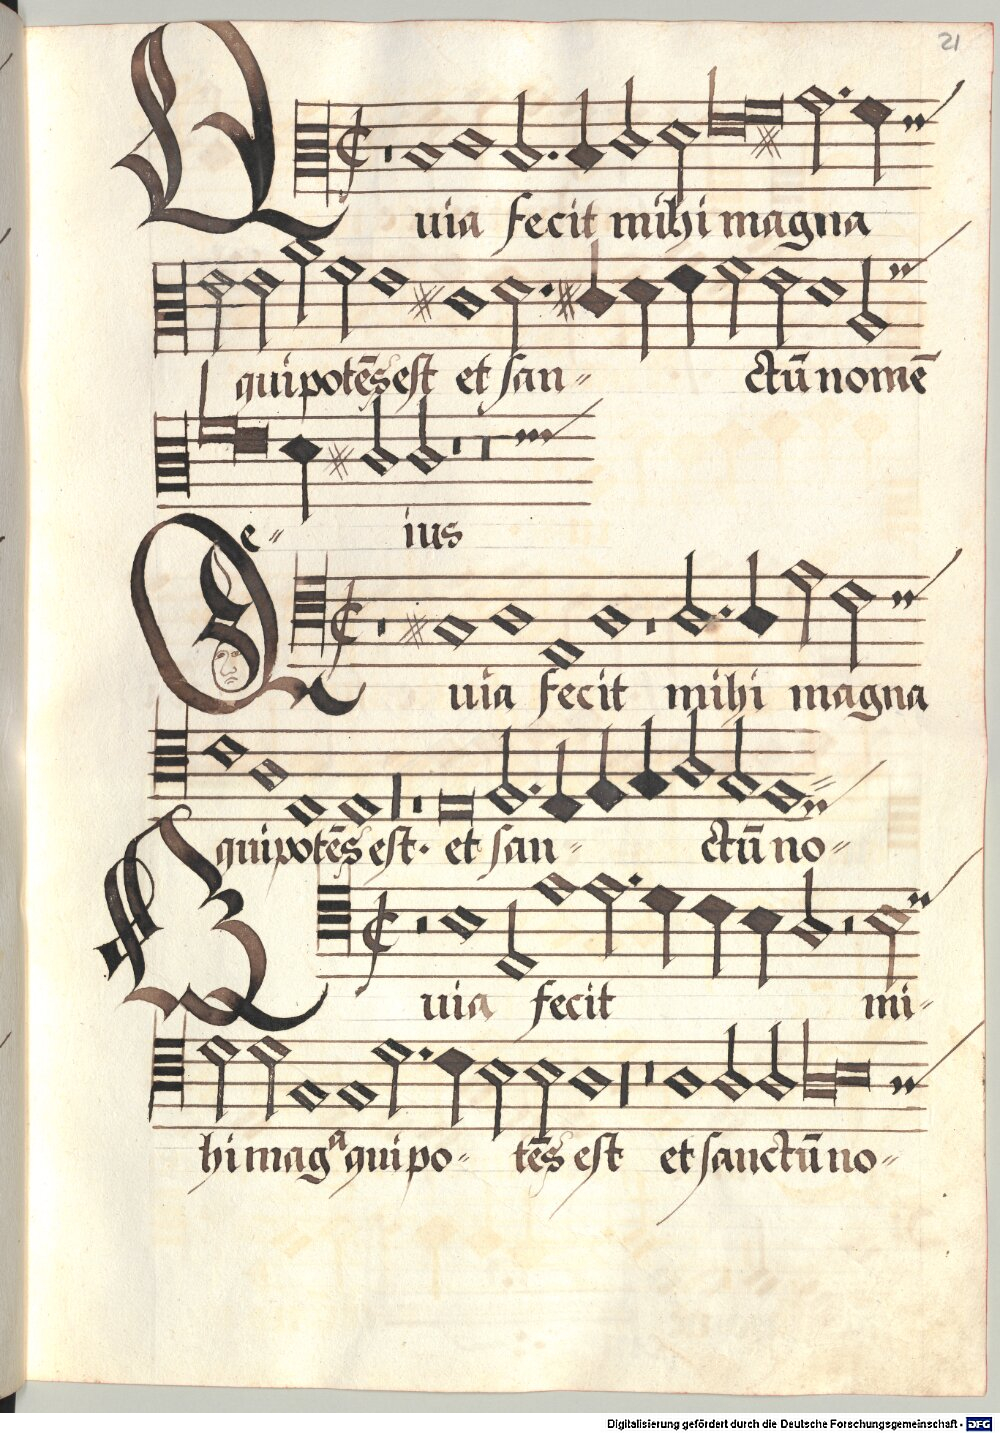 21
Quia fecit mihi magna
qui potēs est et san- ctū nomē
e- ius
Quia fecit mihi magna
qui potēs est. et san- ctū no-
Quia fecit mi-
hi magna qui po- tēs est et sanctū no-
Digitalisierung gefördert durch die Deutsche Forschungsgemeinschaft - DFG